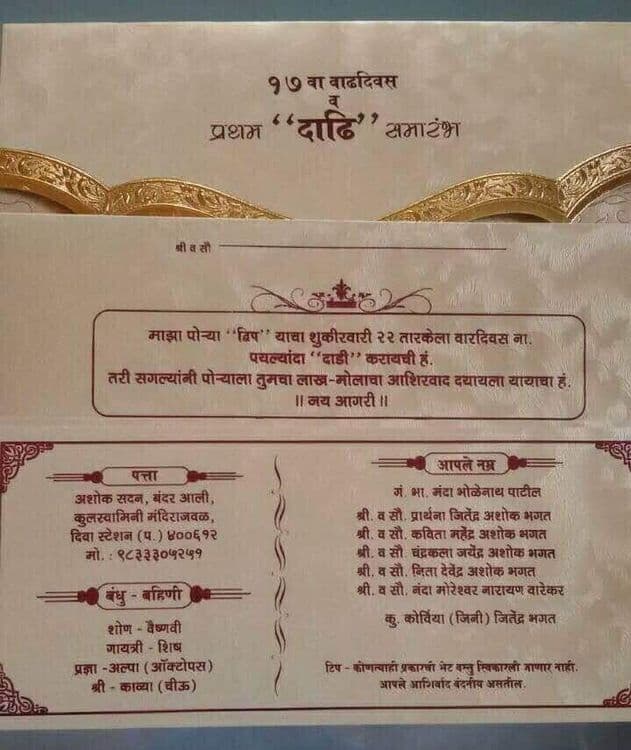 १७ वा वाढदिवस
व
प्रथम “दाढि” समारंभ
श्री व सौ
माझा पोऱ्या “द्विप” याचा शुकीरवारी २२ तारकेला वारदिवस ना.
पयल्यांदा “दाडी” करायची हं.
तरी सगल्यांनी पोऱ्याला तुमचा लाख-मोलाचा आशिरवाद दयायला यायाचा हं.
।। जय आगरी ।।
पत्ता
अशोक सदन, बंदर आली,
कुलस्वामिनी मंदिराजवळ,
दिवा स्टेशन (प.) ४००६१२
मो. : ९८३३३०५२५१
बंधु - बहिणी
शोण - वैष्णवी
गायत्री - शिष
प्रज्ञा - अल्पा (ऑक्टोपस)
श्री - काव्या (चीऊ)
आपले नम्र
गं. भा. मंदा भोळेनाथ पाटील
श्री. व सौ. प्रार्थना जितेंद्र अशोक भगत
श्री. व सौ. कविता महेंद्र अशोक भगत
श्री. व सौ. चंद्रकला जयेंद्र अशोक भगत
श्री. व सौ. निता देवेंद्र अशोक भगत
श्री. व सौ. नंदा मोरेश्वर नारायण वारेकर
कु. कोर्विया (जिनी) जितेंद्र भगत
टिप - कोणत्याही प्रकारची भेट वस्तु स्विकारली जाणार नाही.
आपले आशिर्वाद वंदनीय असतील.